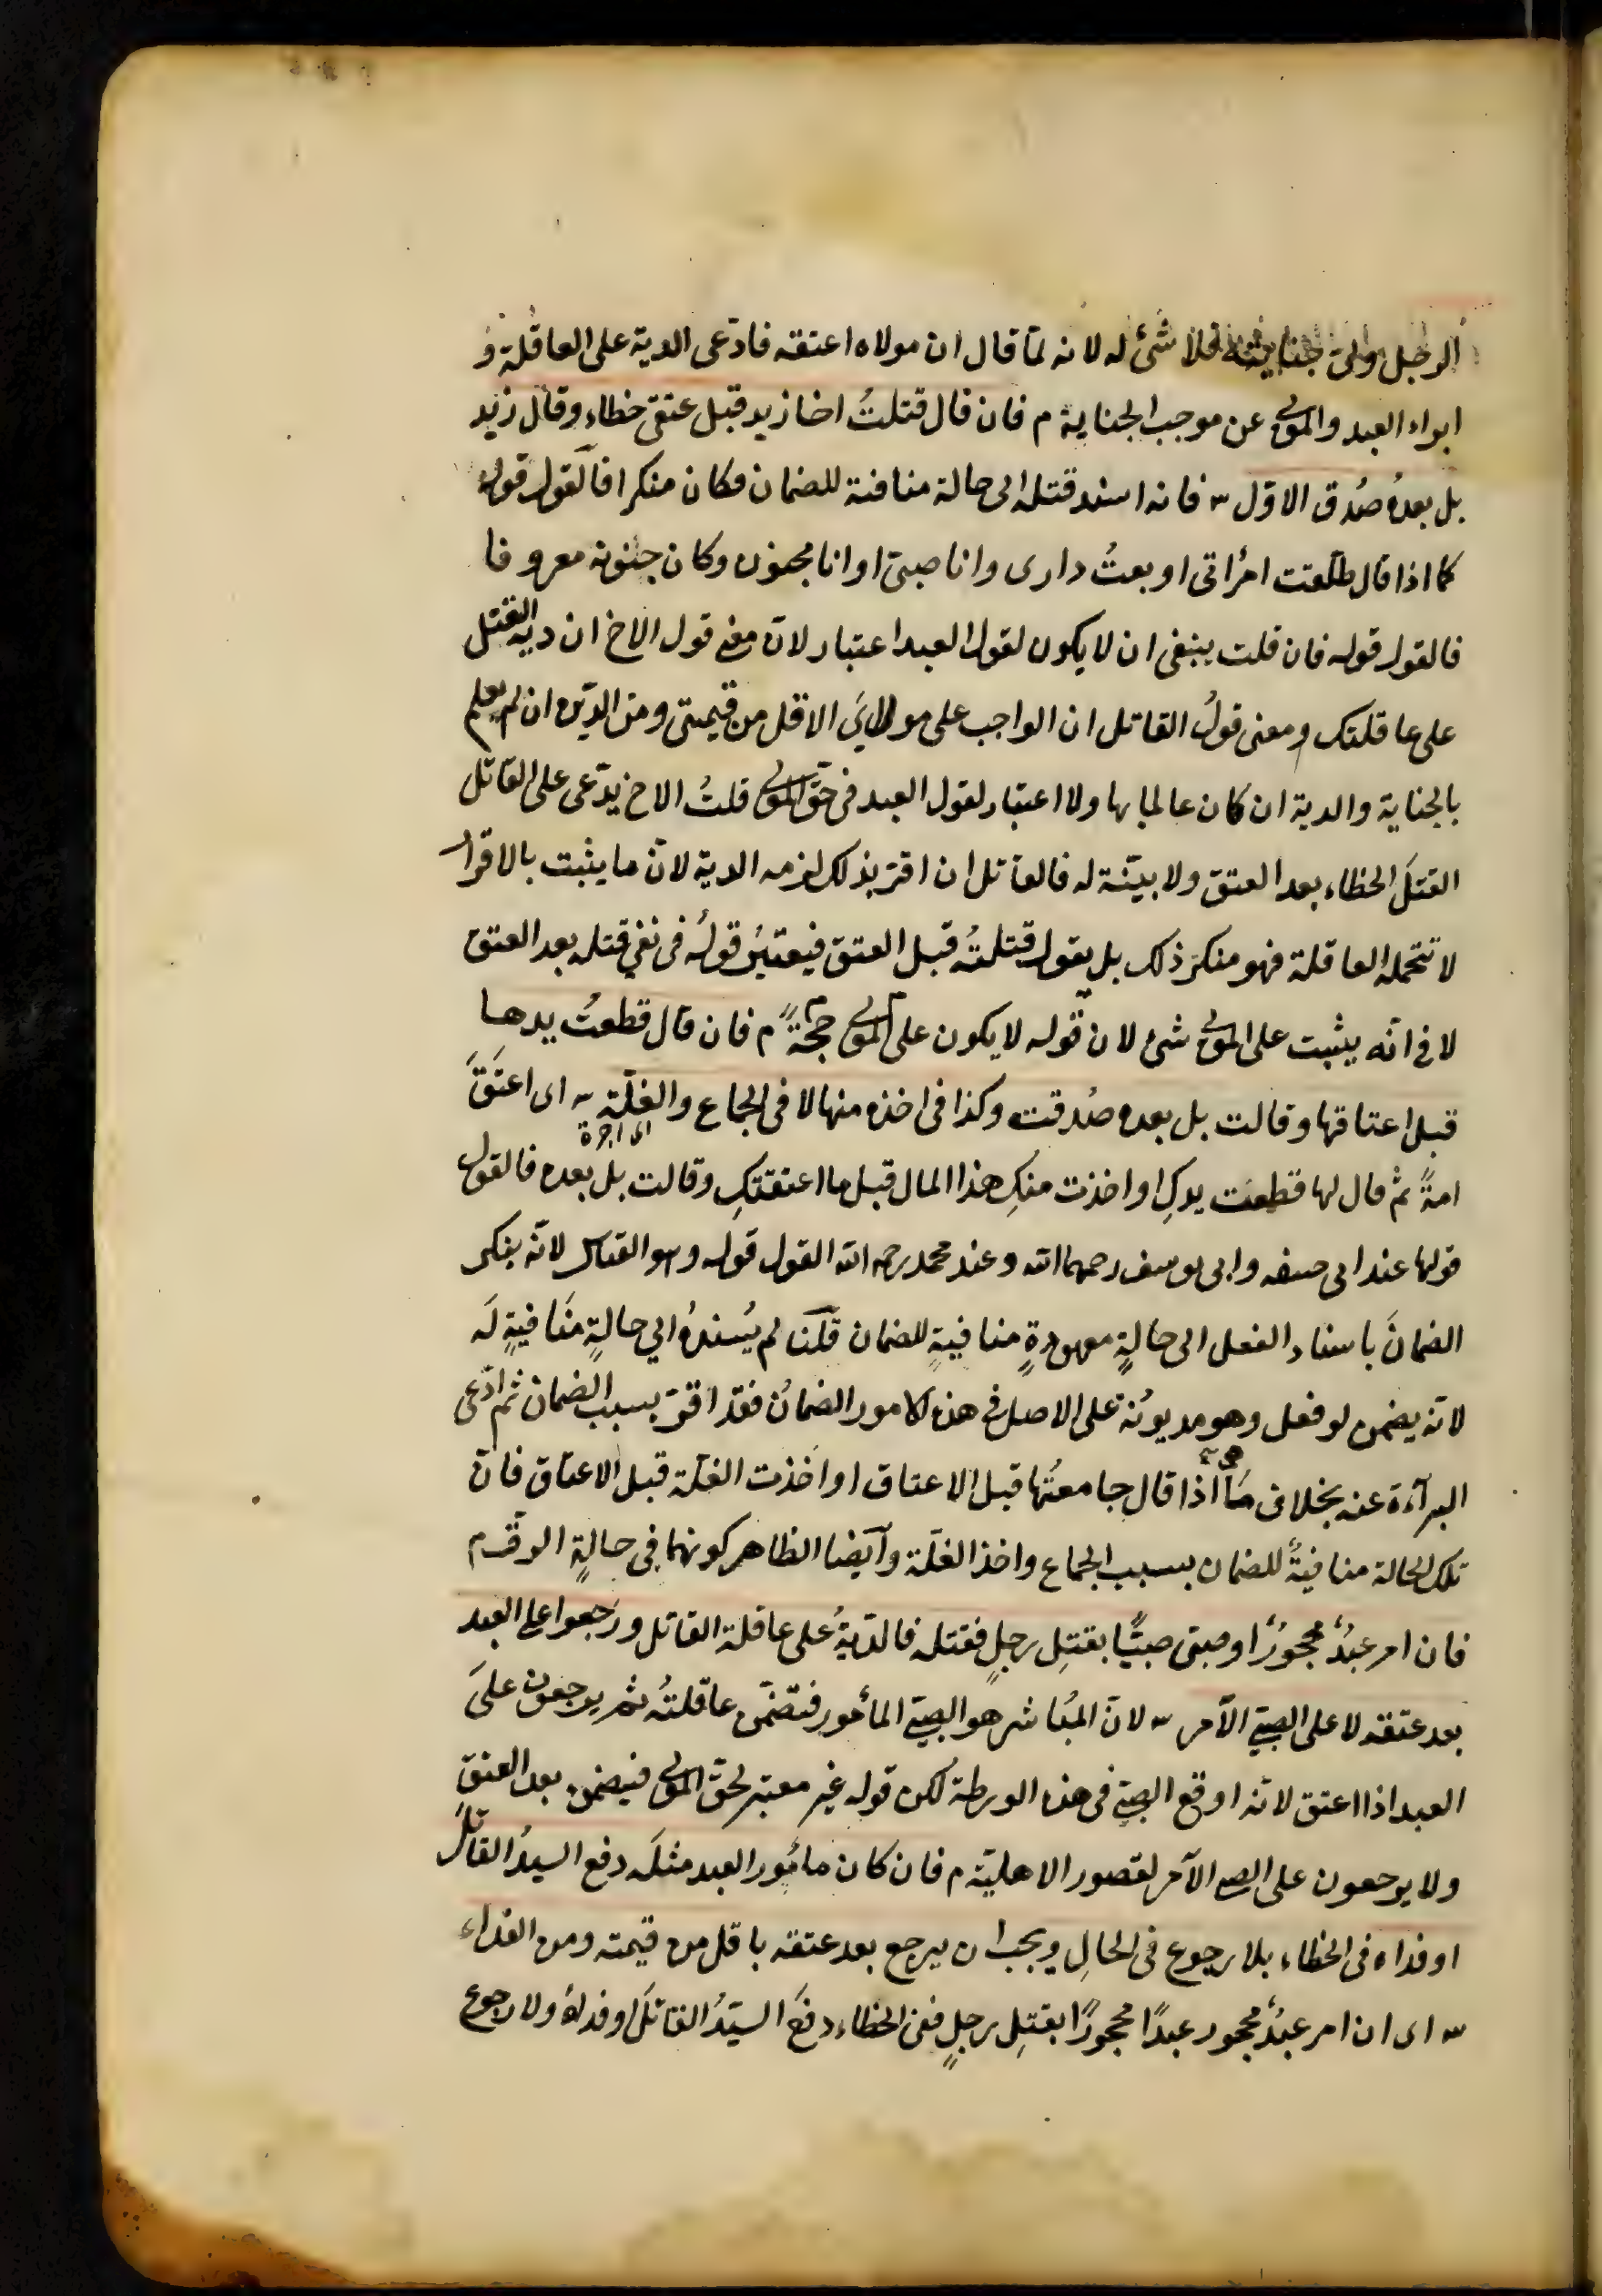 الرجل ولى جناية فلا شئ له لانه لمّا قال ان مولاه اعتقه فادّعى الدية على العاقلة و
ابراء العبد والمولى عن موجب الجناية م فان قال قتلتُ اخا زيد قبل عتقى خطاء وقال زيد
بل بعدهُ صُدق الاوّل س فانه اسند قتله الى حالة منافية للضمان فكان منكرا فالقول قوله
كما اذا قال طلّقت امرأتى او بعتُ دارى وانا صبىّ او انا مجنون وكان جنونه معروفا
فالقول قوله فان قلت ينبغى ان لا يكون لقول العبد اعتبار لانّ معنى قول الاخ ان دية القتل
على عاقلتك ومعنى قول القاتل ان الواجب على مولاىَ الاقل من قيمتى ومن الديّة ان لم يعلم
بالجناية والدية ان كان عالما بها ولا اعتبار لقول العبد فى حقّ المولى قلتُ الاخ يدّعى على القاتل
القتلَ الخطاء بعد العتق ولا بيّنة له فالقاتل ان اقرّ بذلك لزمه الدية لانّ ما يثبت بالاقرار
لا تتحمله العاقلة فهو منكرَ ذلك بل يقول قتلتهُ قبل العتق فيعتبرُ قولهُ فى نفي قتله بعد العتق
لا فى انّه يثبت على المولى شئ لان قوله لا يكون على المولى حجّةً م فان قال قطعتُ يدها
قبل اعتاقها وقالت بل بعده صُدقت وكذا فى اخذه منها لا فى الجماع والغلّة س اى اعتَقَ
اى اجرة
امةً ثم قال لها قطعت يدكِ او اخذت منكِ هذا المال قبل ما اعتقتكِ وقالت بل بعده فالقول
قولها عند ابى حنيفه وابى يوسف رحمهما الله وعند محمد رحمه الله القول قوله وهو القياس لانّه ينكر
الضمانَ باسناد الفعل الى حالةٍ معهودةٍ منافيةٍ للضمان قلنا لم يُسندهُ الي حالةٍ مَنافيةٍ لَه
لانّه يضمن لو فعل وهو مديونة على الاصل فى هذه الامور الضمانُ فقد اقرّ بسبب الضمان ثم ادّعى
البرآءة عنه بخلاف ما اذا قال جامعتُها قبل الاعتاق او اخذت الغلّة قبل الاعتاق فانّ
تلك الحالة منافيةً للضمان بسبب الجماع واخذ الغلّة وآيضا الظاهر كونهما فى حالةٍ الرقّ م
فان امر عبدٌ محجورٌ او صبىّ صبيًّا بقتلِ رجلٍ فقتله فالدّيةُ على عاقلة القاتل ورَجعوا على العبد
بعد عتقه لا على الصبيّ الآمر س لانّ المُباشر هو الصبيّ المأمور فتضمّن عاقلتُه ثم يرجعون علىَ
العبد اذا اعتق لانّه اوقع الصبيّ فى هذه الورطة لكن قوله غير معتبر لحقّ المولى فيضمن بعد العتق
ولا يرجعون على الصبى الآمر لقصور الاهليّة م فان كان مأمور العبد مثلَه دفع السيدُ القاتلَ
او فداه فى الخطاء بلا رجوع فى الحالِ ويجب ان يرجع بعد عتقه باقل من قيمته ومن الفداء
س اى ان امر عبدٌ محجور عبدًا محجورًا بقتلِ رجلٍ ففى الخطاء دفعَ السيّدُ القاتلَ او فداهُ ولا رجوع